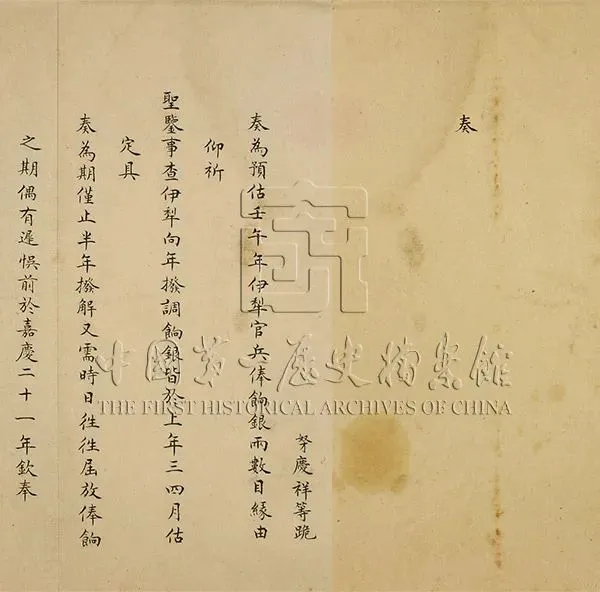 奏
奴才慶祥等跪
奏為預估壬午年伊犁官兵俸餉銀兩數目緣由
仰祈
聖鑒事查伊犁向年撥調餉銀皆於上年三四月估
定具
奏為期僅止半年撥解又需時日徃徃屆放俸餉
之期偶有遲悞前於嘉慶二十一年欽奉
中國第一歷史檔案館
THE FIRST HISTORICAL ARCHIVES OF CHINA